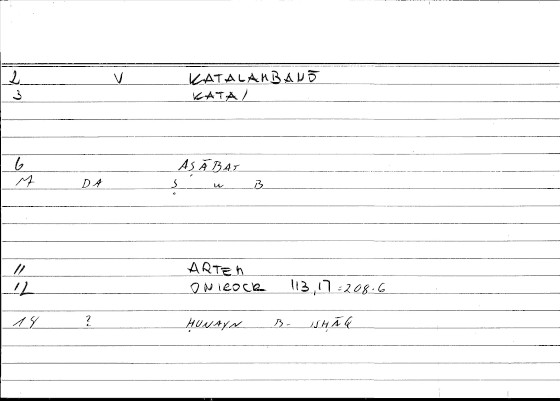 2 V KATALAMBANŌ
3 KATA/
6 AṢĀBAT
17 DA Ṣ w B
11 ARTEM
12 ONIROCR 113,17=208.6
14 ? ḤUNAYN B- ISḤĀQ